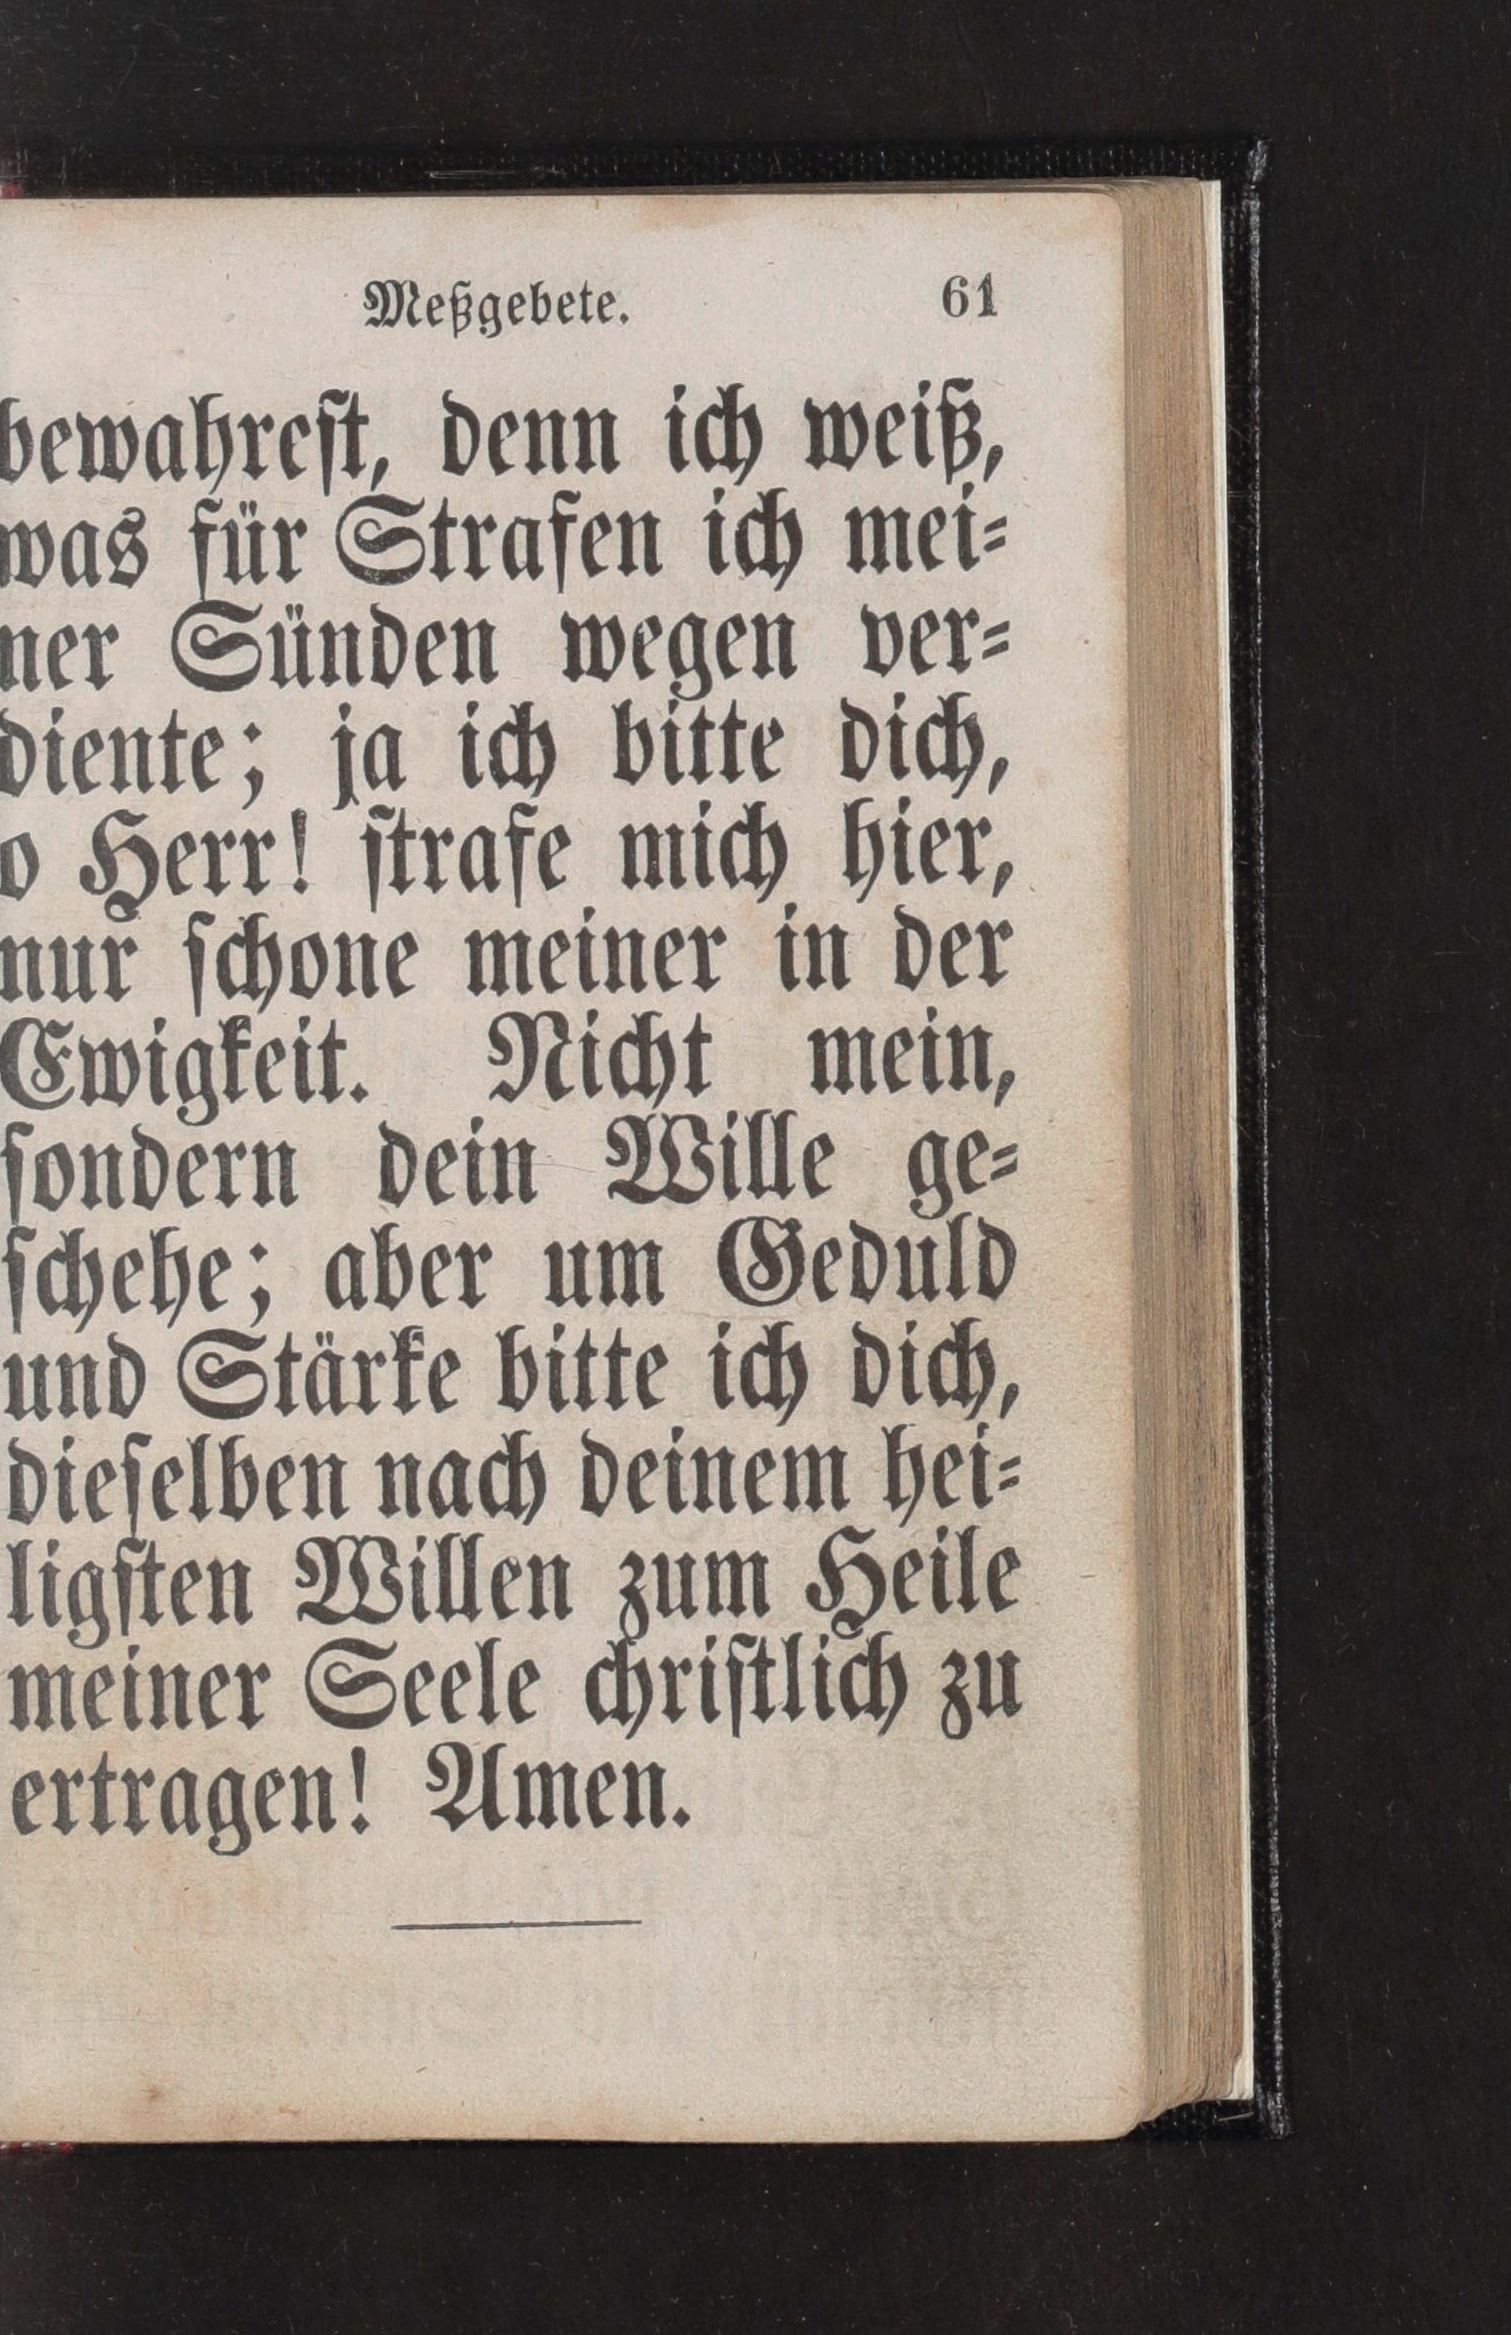 Meßgebete. 61
bewahrest, denn ich weiß,
was für Strafen ich mei-
ner Sünden wegen ver-
diente; ja ich bitte dich,
o Herr! strafe mich hier,
nur schone meiner in der
Ewigkeit. Nicht mein,
sondern dein Wille ge-
schehe; aber um Geduld
und Stärke bitte ich dich,
dieselben nach deinem hei-
ligsten Willen zum Heile
meiner Seele christlich zu
ertragen! Amen.